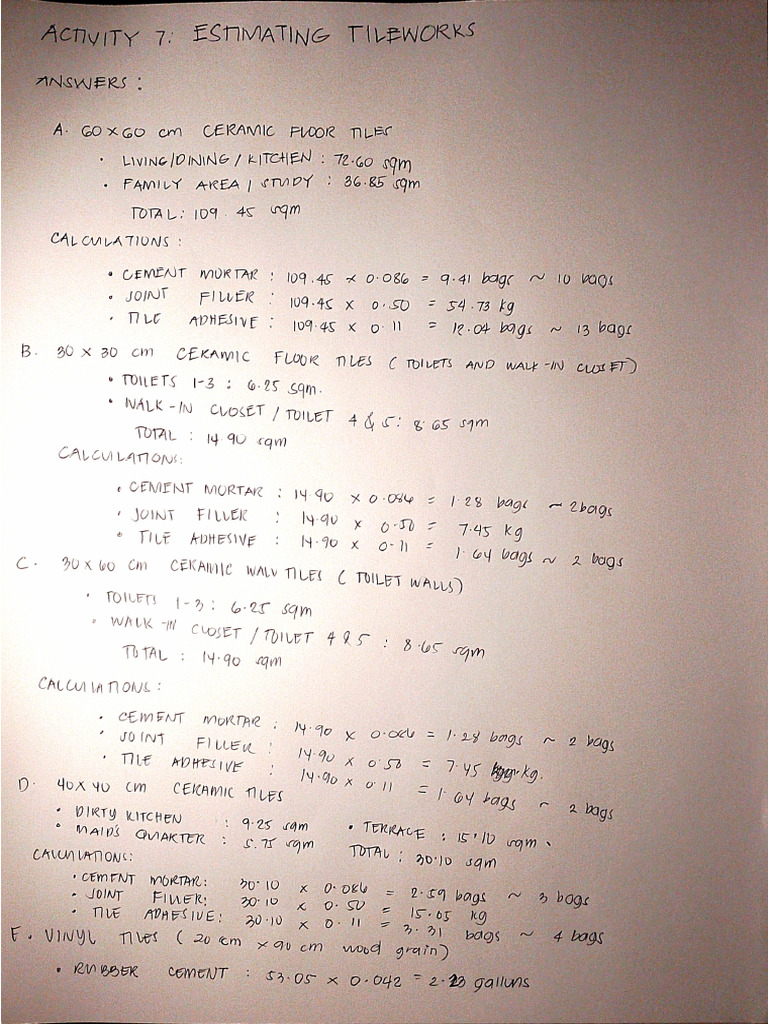 ACTIVITY 7: ESTIMATING TILEWORKS
ANSWERS:
A. 60 x 60 cm CERAMIC FLOOR TILES
• LIVING/DINING/KITCHEN: 72.60 sqm
• FAMILY AREA/STUDY: 36.85 sqm
TOTAL: 109.45 sqm
CALCULATIONS:
• CEMENT MORTAR: 109.45 x 0.086 = 9.41 bags ~ 10 bags
• JOINT FILLER: 109.45 x 0.50 = 54.73 kg
• TILE ADHESIVE: 109.45 x 0.11 = 12.04 bags ~ 13 bags
B. 30 x 30 cm CERAMIC FLOOR TILES (TOILETS AND WALK-IN CLOSET)
• TOILETS 1-3: 6.25 sqm.
• WALK-IN CLOSET/TOILET 4 & 5: 8.65 sqm
TOTAL: 14.90 sqm
CALCULATIONS:
• CEMENT MORTAR: 14.90 x 0.086 = 1.28 bags ~ 2 bags
• JOINT FILLER: 14.90 x 0.50 = 7.45 kg
• TILE ADHESIVE: 14.90 x 0.11 = 1.64 bags ~ 2 bags
C. 30 x 60 cm CERAMIC WALL TILES (TOILET WALLS)
• TOILETS 1-3: 6.25 sqm
• WALK-IN CLOSET/TOILET 4 & 5: 8.65 sqm
TOTAL: 14.90 sqm
CALCULATIONS:
• CEMENT MORTAR: 14.90 x 0.086 = 1.28 bags ~ 2 bags
• JOINT FILLER: 14.90 x 0.50 = 7.45 kg.
• TILE ADHESIVE: 14.90 x 0.11 = 1.64 bags ~ 2 bags
D. 40 x 40 cm CERAMIC TILES
• DIRTY KITCHEN: 9.25 sqm • TERRACE: 15.10 sqm.
• MAIDS QUARTER: 5.75 sqm TOTAL: 30.10 sqm
CALCULATIONS:
• CEMENT MORTAR: 30.10 x 0.086 = 2.59 bags ~ 3 bags
• JOINT FILLER: 30.10 x 0.50 = 15.05 kg
• TILE ADHESIVE: 30.10 x 0.11 = 3.31 bags ~ 4 bags
E. VINYL TILES (20 cm x 90 cm wood grain)
• RUBBER CEMENT: 53.05 x 0.042 = 2.23 gallons